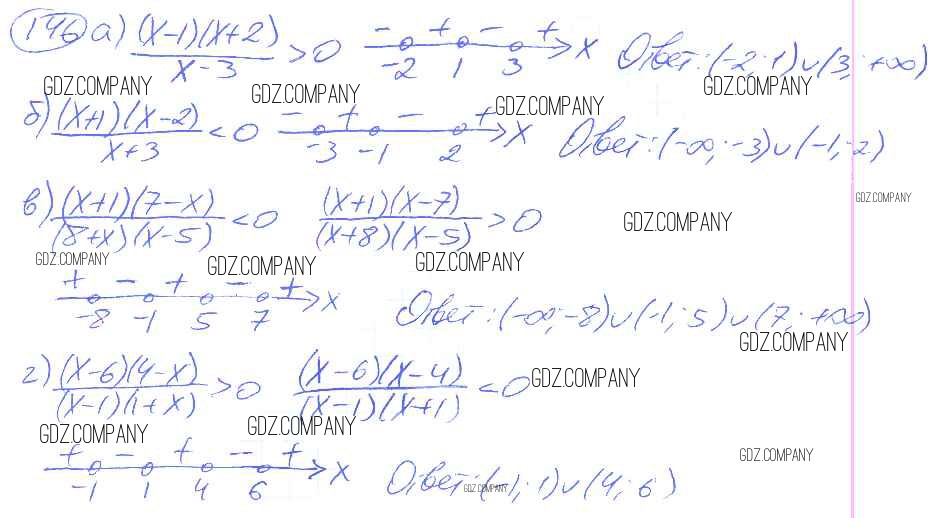 146 а) (x-1)(x+2)/(x-3) > 0 - + - + x Ответ: (-2; 1)∪(3; +∞)
-2 1 3
GDZ.COMPANY GDZ.COMPANY GDZ.COMPANY GDZ.COMPANY
б) (x+1)(x-2)/(x+3) < 0 - + - + x Ответ: (-∞; -3)∪(-1; 2)
-3 -1 2
GDZ.COMPANY
в) (x+1)(7-x)/(8+x)(x-5) < 0 (x+1)(x-7)/(x+8)(x-5) > 0 GDZ.COMPANY
GDZ.COMPANY GDZ.COMPANY GDZ.COMPANY
+ - + - + x Ответ: (-∞; -8)∪(-1; 5)∪(7; +∞)
-8 -1 5 7
GDZ.COMPANY
г) (x-6)(4-x)/(x-1)(1+x) > 0 (x-6)(x-4)/(x-1)(x+1) < 0 GDZ.COMPANY
GDZ.COMPANY GDZ.COMPANY
GDZ.COMPANY
+ - + - + x Ответ: (-1; 1)∪(4; 6)
-1 1 4 6
GDZ.COMPANY